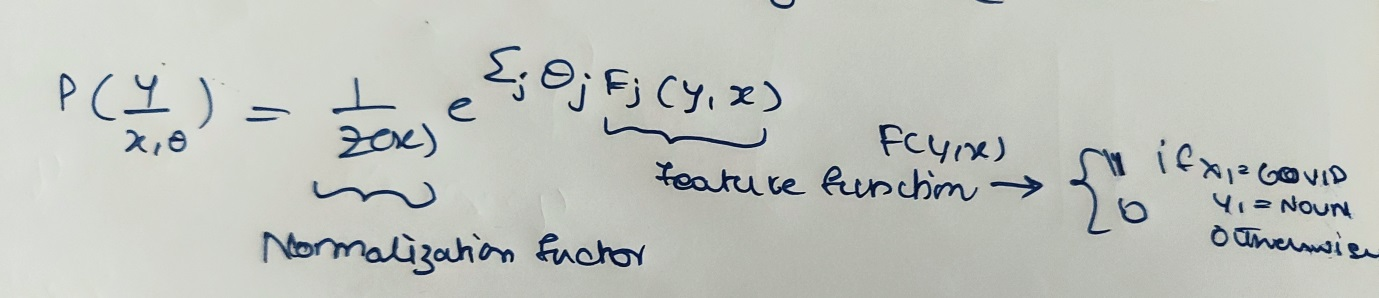 P(y/x,θ) = 1/Z(x) e^Σj θj Fj(y,x)
Normalization factor
Feature function → F(y,x) { 1 if x1 = COVID
y1 = NOUN
0 otherwise